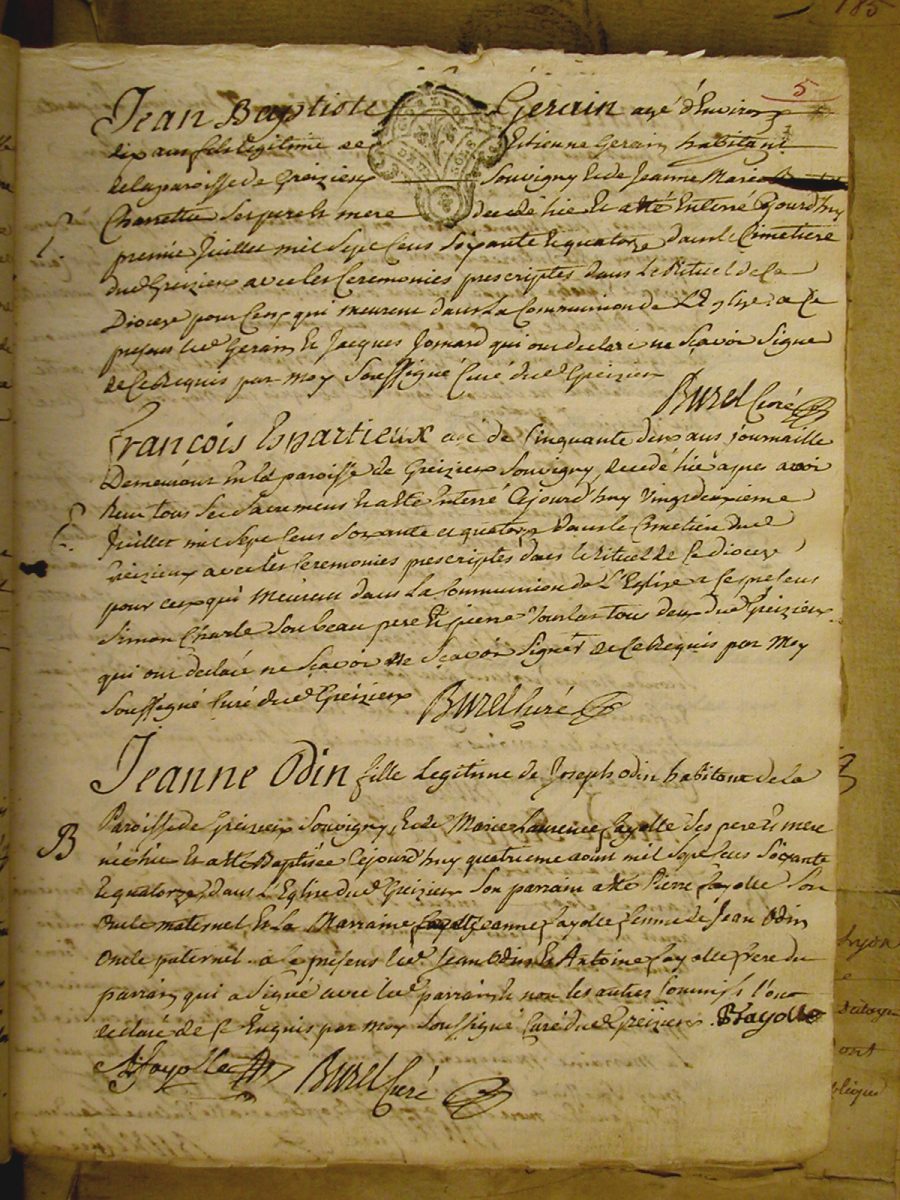 185
5
Jean Baptiste Gerain agé d'Environ
dix ans fils Legitime de Etienne Gerain habitant
de la paroisse de Greizieux Souvigny et de Jeanne Marie
Charretier ses pere et mere decedé hier et a eté Enterré Cejourd'huy
premier Juillet mil Sept Cens Soixante Equatorze dans le Cimetiere
dud Greizieux avec les Ceremonies prescriptes dans Le Rituel de Ce
Diocese pour Ceux qui meurent dans La Communion de L'Eglise a Ce
presens led Gerain et Jacques Jomard qui ont declaré ne Sçavoir Signé
de Ce Requis par moy Soussigné Curé dud Greizieux
Burel Curé
E.
François Espartieux agé de Cinquante deux ans journaille
Demeurant En la paroisse de Greizieux Souvigny decedé hier apres avoir
Reçu tous Ses Sacremens et a eté Enterré Cejourd'huy vingt deuxieme
Juillet mil Sept Cens Soixante et quatorze dans le Cimetiere dud
Greizieux avec les Ceremonies prescriptes dans le Rituel de Ce diocese
pour ceux qui Meurent dans La Communion de L'Eglise a Ce presens
Simon Charle Son beau pere et pierre tous deux dud Greizieux
qui ont declaré ne Sçavoir ne Sçavoir Signer de Ce Requis par Moy
Soussigné Curé dud Greizieux
Burel Curé
E.
Jeanne Odin fille Legitime de Joseph Odin habitant de la
Paroisse de Greizieux Souvigny, et de Marie Laurence fayolle Ses pere et mere
née hier et a eté Baptisée Cejourd'huy quatrieme aout mil Sept Cens Soixante
Equatorze dans L'Eglise dud Greizieux Son parrain a eté Pierre fayolle Son
Oncle maternel et La Marraine Jeanne fayolle femme de Jean Odin
Oncle paternel a Ce presens led Jean Odin et Antoine fayolle pere du
parrain qui a Signé avec led parrain et non les autres Comme ils l'ont
declaré de Ce Enquis par moy Soussigné Curé dud Greizieux P fayolle
A fayolle Burel Curé
B
Lyon
e
ont